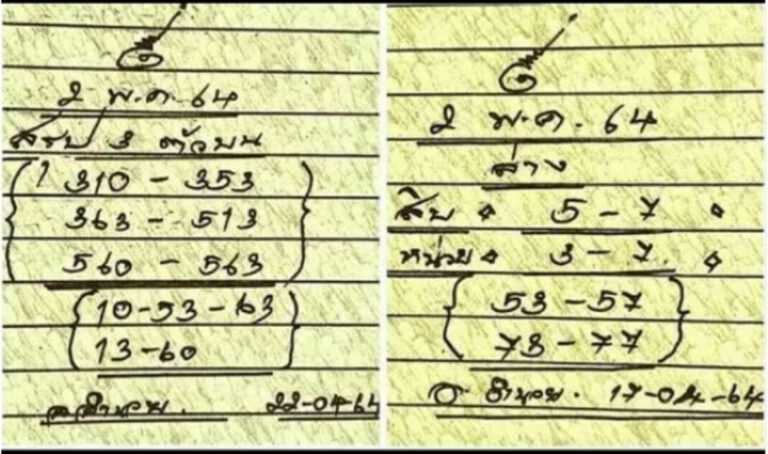 2 พ.ค. 64
สรุป 3 ตัวบน
310 - 353
363 - 513
560 - 563
10-53-63
13-60
22-04-64
2 พ.ค. 64
ล่าง
สิบ 5 - 7
หน่วย 3 - 7
53 - 57
73 - 77
17-04-64